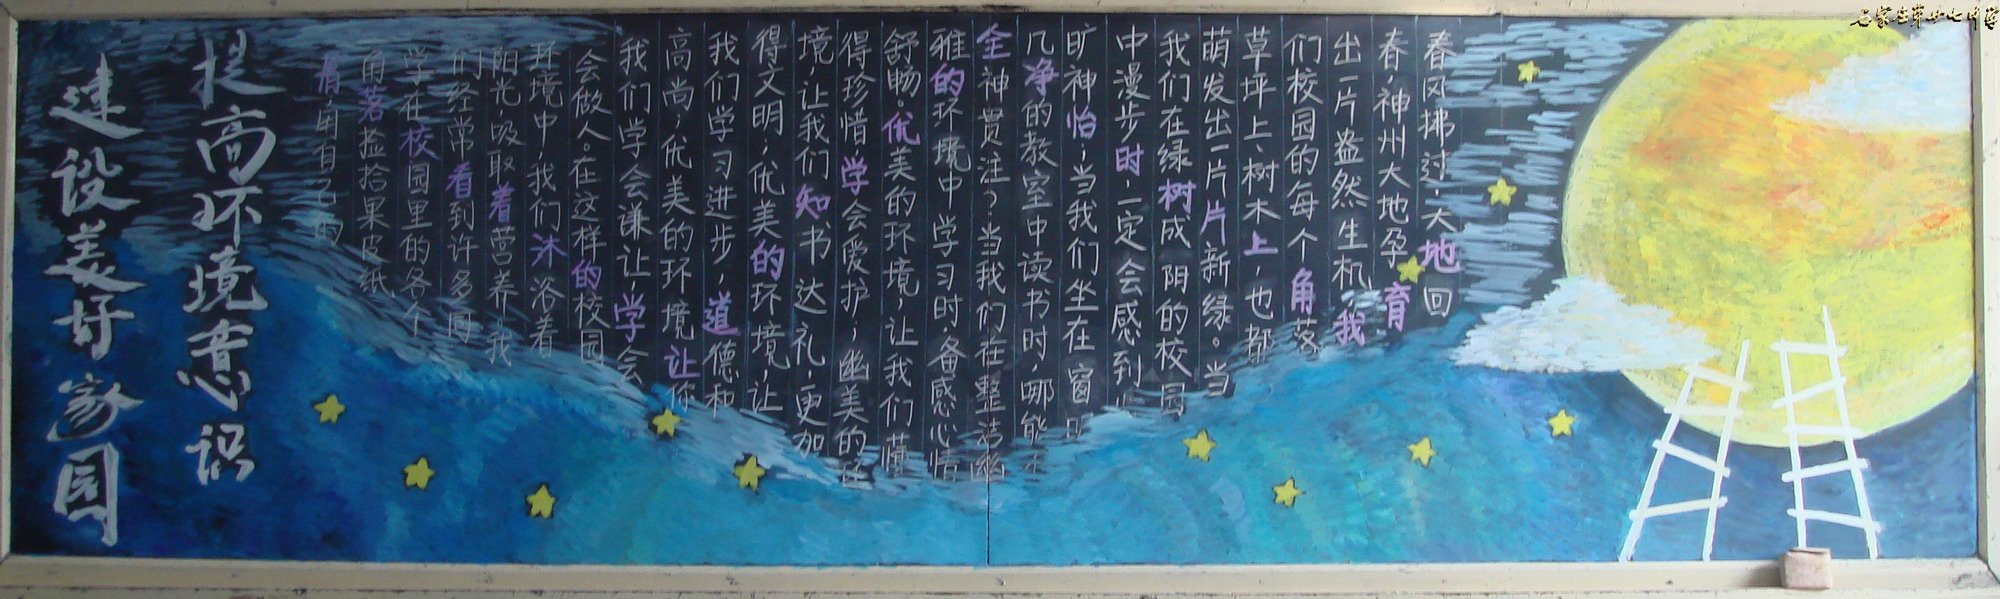 石家庄第廿七中学
春风拂过,大地回
春,神州大地孕育
出一片盎然生机,我
们校园的每个角落
草坪上、树木上,也都
萌发出一片片新绿。当
我们在绿树成阴的校园
中漫步时,一定会感到心
旷神怡;当我们坐在窗明
几净的教室中读书时,哪能不
全神贯注?当我们在整洁幽
雅的环境中学习时,备感心情
舒畅。优美的环境,让我们懂
得珍惜学会爱护;幽美的环
境,让我们知书达礼,更加
得文明;优美的环境,让
我们学习进步,道德和
高尚;优美的环境让你
我们学会谦让,学会
会做人。在这样的校园
环境中,我们沐浴着
阳光,吸取着营养,我
们经常看到许多同
学在校园里的各个
角落捡拾果皮纸
屑,用自己的
提高环境意识
建设美好家园